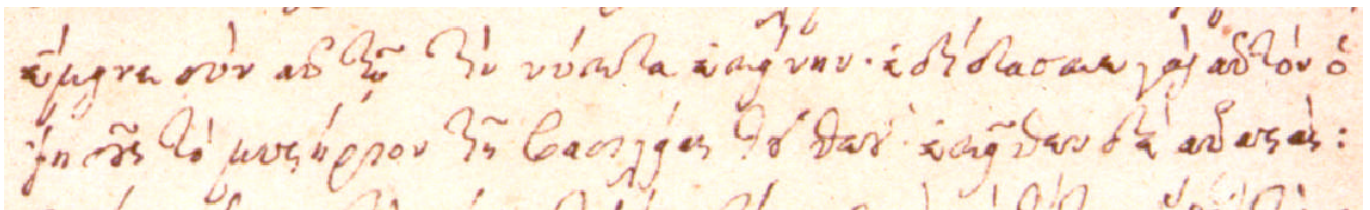 ἔμεινε σὺν αὐτῷ τὴν νύκτα ἐκείνην· ἐδίδασκε γὰρ αὐτὸν ὁ
Ἰησοῦς τὸ μυστήριον τῆς βασιλείας τοῦ θεοῦ· ἐκεῖθεν δὲ ἀναστὰς: